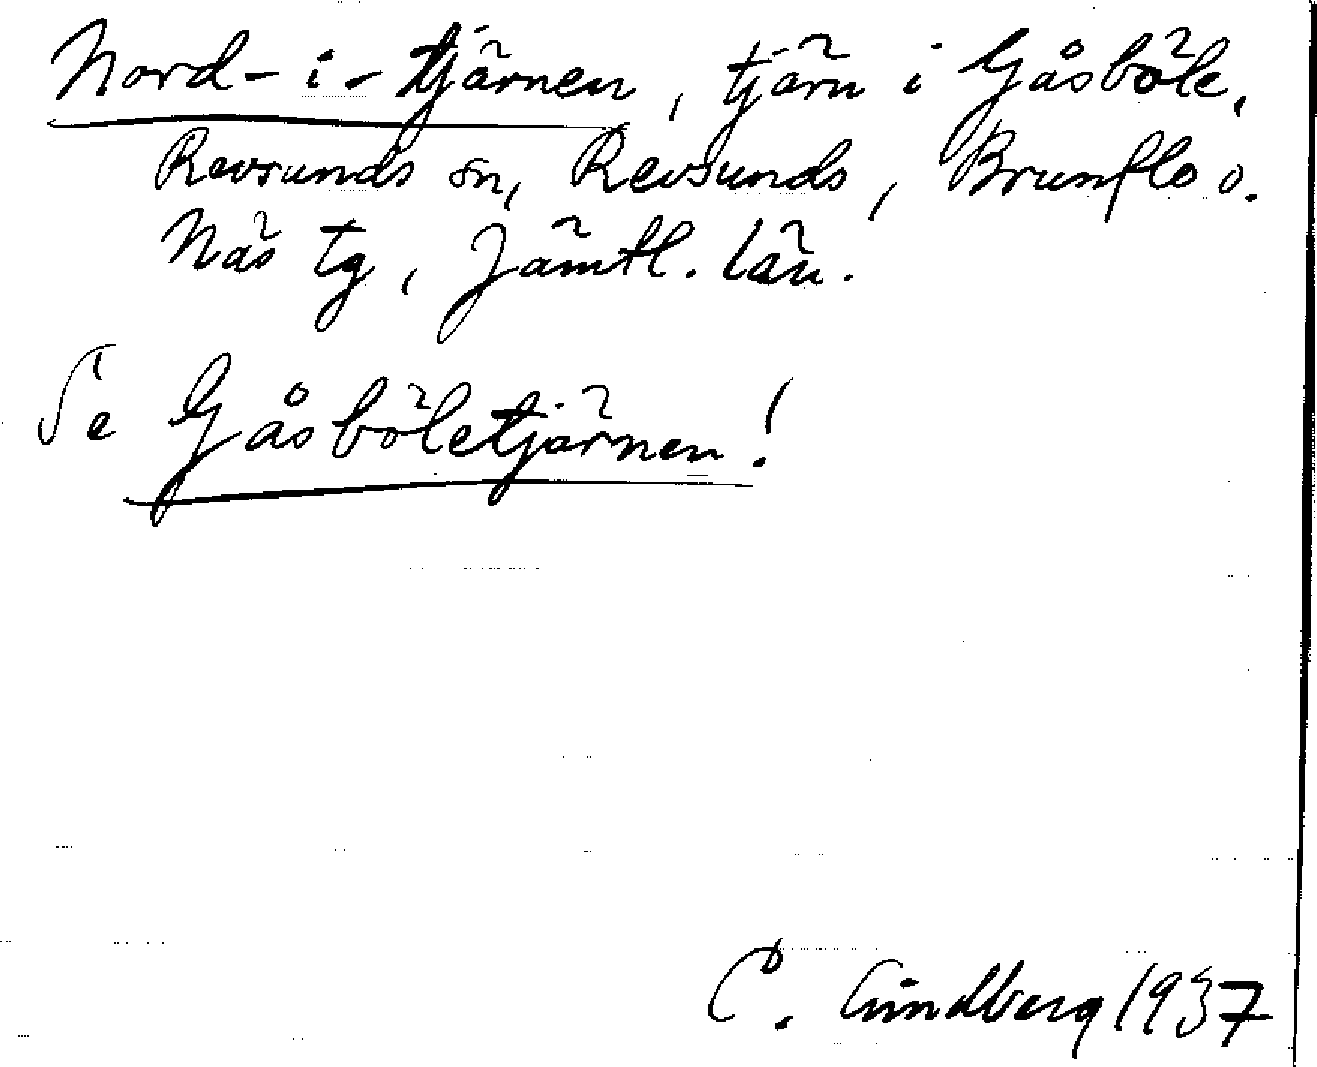 Nord-i-tjärnen, tjärn i Gåsböle,
Revsunds sn, Revsunds, Brunflo o.
Näs tg, Jämtl. län.
Se Gåsböletjärnen!
C. Lindberg 1937